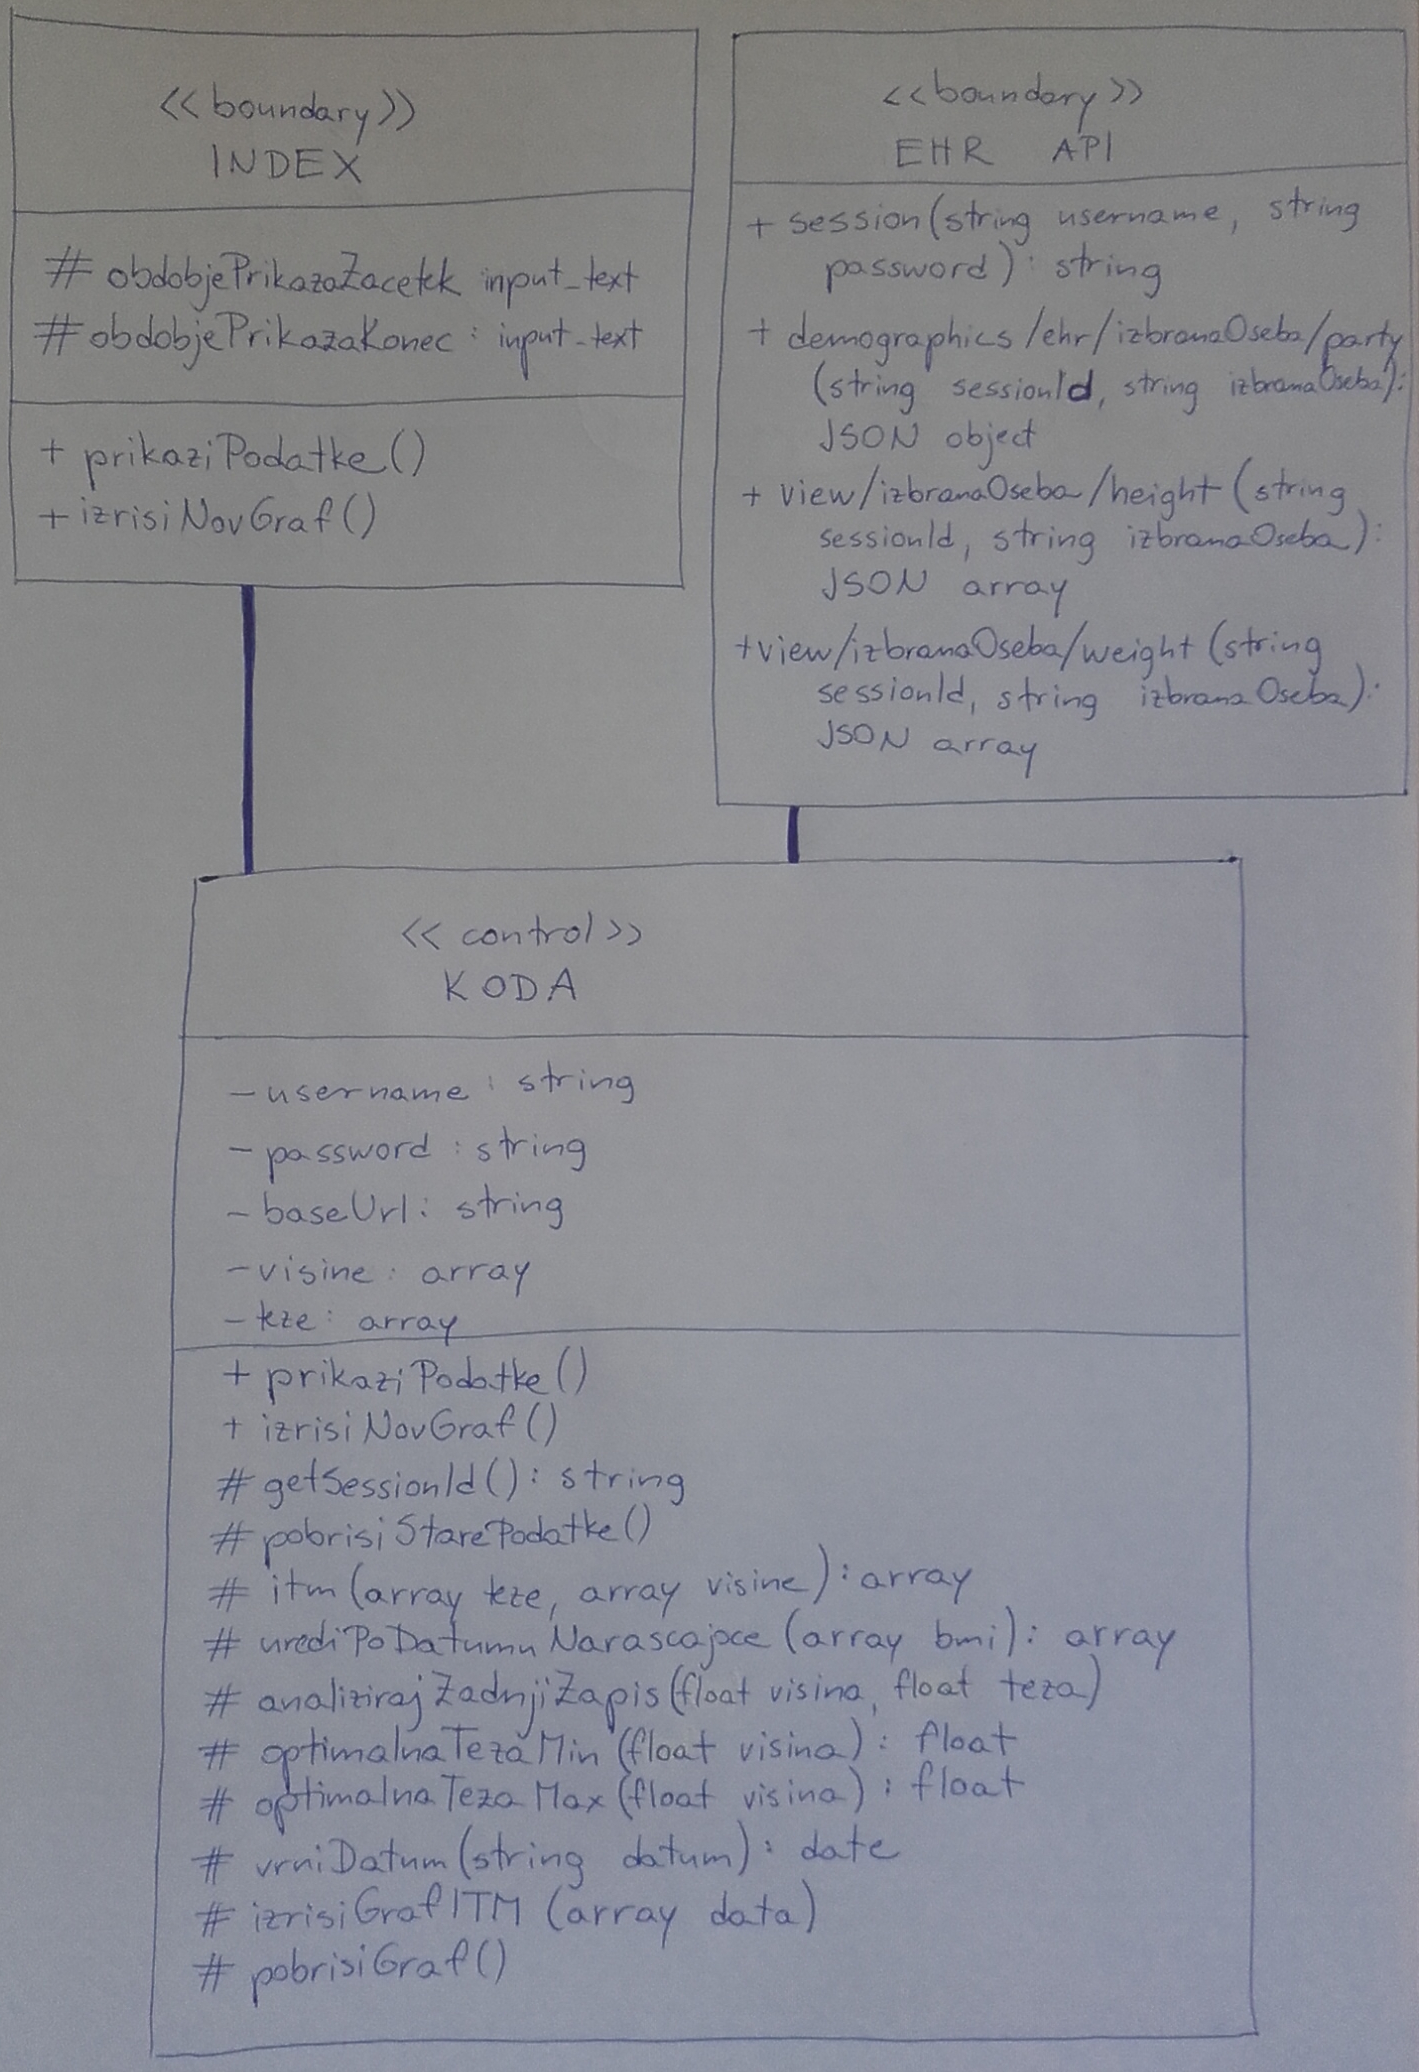 <<boundary>>
INDEX
# obdobjePrikazaZacetek input_text
# obdobjePrikazaKonec : input_text
+ prikaziPodatke()
+ izrisiNovGraf()
<<boundary>>
EHR API
+ session(string username, string
password) : string
+ demographics/ehr/izbranaOseba/party
(string sessionId, string izbranaOseba):
JSON object
+ view/izbranaOseba/height (string
sessionId, string izbranaOseba):
JSON array
+view/izbranaOseba/weight (string
sessionId, string izbranaOseba):
JSON array
<< control >>
KODA
- username : string
- password : string
- baseUrl : string
- visine : array
- teze : array
+ prikaziPodatke()
+ izrisiNovGraf()
# getSessionId() : string
# pobrisiStarePodatke()
# itm(array teze, array visine) : array
# urediPoDatumuNarascajoce (array bmi) : array
# analizirajZadnjiZapis(float visina, float teza)
# optimalnaTezaMin (float visina) : float
# optimalnaTezaMax (float visina) : float
# vrniDatum(string datum) : date
# izrisiGrafITM (array data)
# pobrisiGraf()